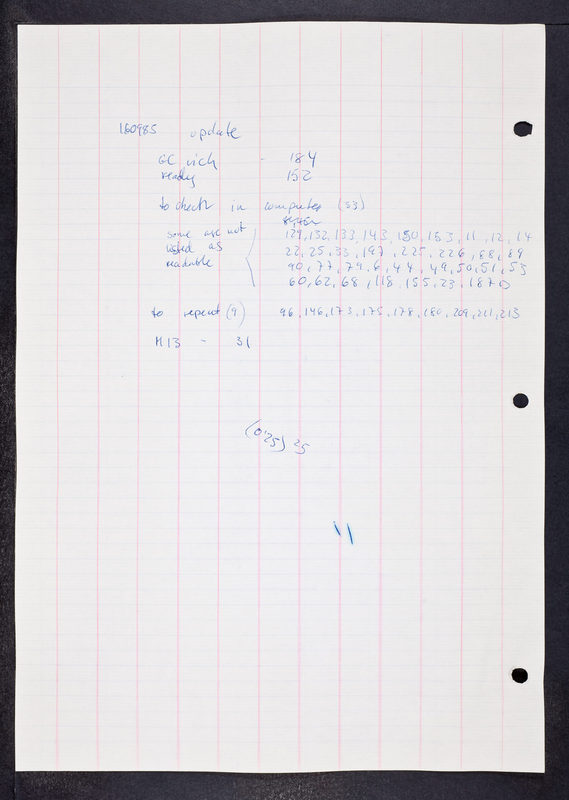 160985 update
GC rich - 184
ready 152
to check in computer (33)
some are not 129, 132, 133, 143, 150, 153, 11, 12, 14
listed as 22, 25, 33, 197, 225, 226, 88, 89
readable 90, 77, 79, 6, 44, 49, 50, 51, 53
60, 62, 68, 118, 155, 23, 187
to repeat (9) 96, 146, 173, 175, 178, 180, 209, 211, 213
M13 - 31
(0'25) 25